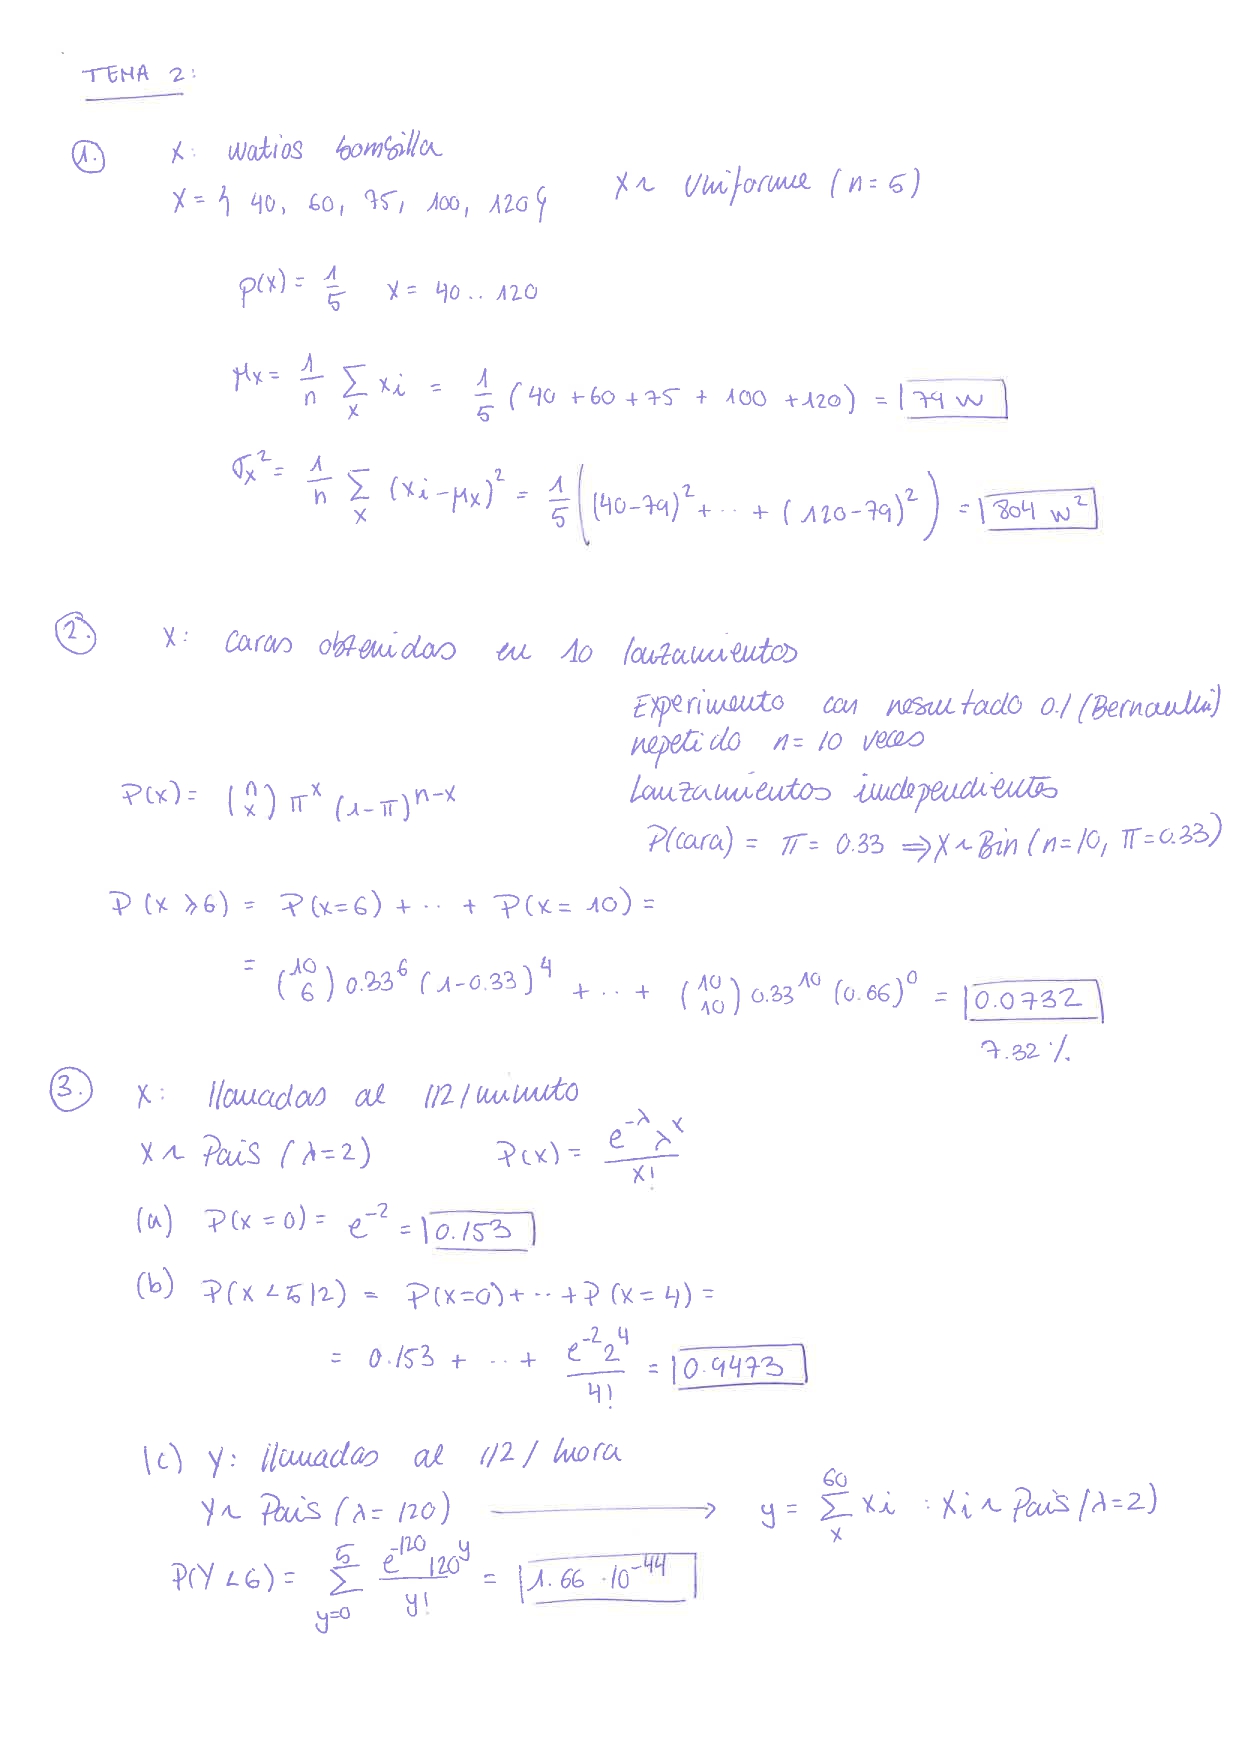 TEMA 2:
1. X: watios bombilla
X = { 40, 60, 75, 100, 120 }    X ~ Uniforme (n = 5)
p(x) = 1/5    x = 40..120
μx = 1/n Σx xi = 1/5 (40 + 60 + 75 + 100 + 120) = 79 w
σx² = 1/n Σx (xi - μx)² = 1/5 ((40-79)² + .. + (120-79)²) = 804 w²
2. X: caras obtenidas en 10 lanzamientos
Experimento con resultado 0.1 (Bernoulli)
repetido n = 10 veces
P(x) = (n x) π^x (1-π)^(n-x)    Lanzamientos independientes
P(cara) = π = 0.33 ⇒ X ~ Bin (n=10, π=0.33)
P(X ⩾ 6) = P(X=6) + .. + P(X = 10) =
= (10 6) 0.33^6 (1-0.33)^4 + .. + (10 10) 0.33^10 (0.66)^0 = 0.0732
7.32 %
3. X: llamadas al 112/minuto
X ~ Pois (λ=2)    P(x) = e^(-λ) λ^x / x!
(a) P(X = 0) = e^(-2) = 0.153
(b) P(X < 5|2) = P(X=0) + .. + P(X = 4) =
= 0.153 + .. + e^(-2) 2^4 / 4! = 0.9473
(c) Y: llamadas al 112 / hora
Y ~ Pois (λ = 120) → y = Σx^60 Xi : Xi ~ Pois (λ=2)
P(Y < 6) = Σ(y=0)^5 e^(-120) 120^y / y! = 1.66 · 10^(-44)